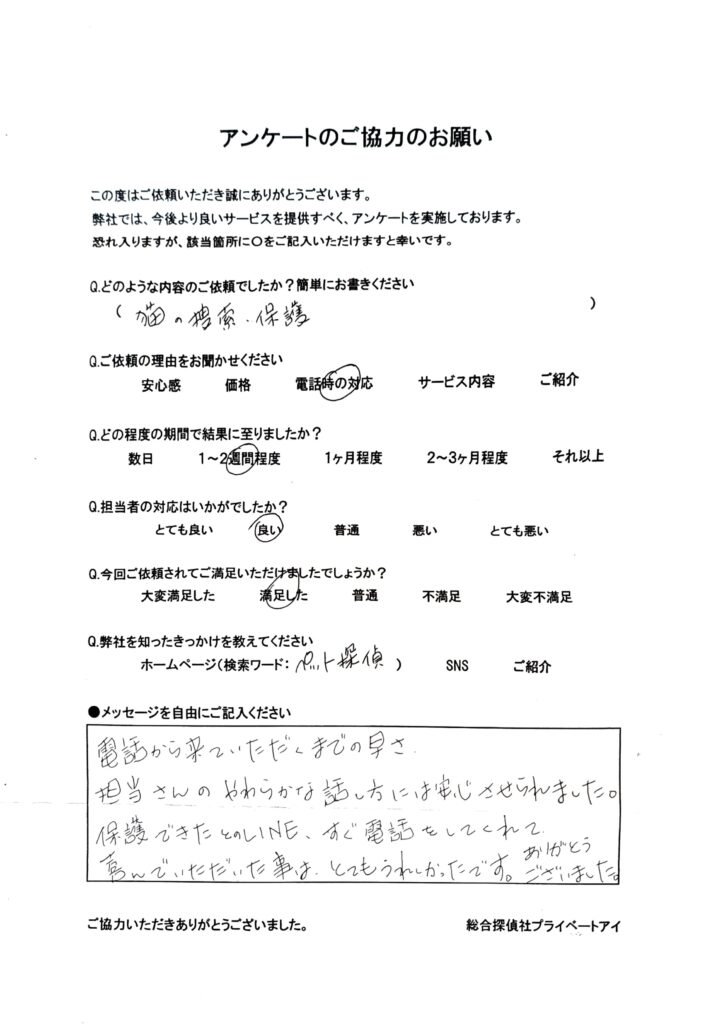 アンケートのご協力のお願い
この度はご依頼いただき誠にありがとうございます。
弊社では、今後より良いサービスを提供すべく、アンケートを実施しております。
恐れ入りますが、該当箇所に○をご記入いただけますと幸いです。
Q.どのような内容のご依頼でしたか？簡単にお書きください
（ 猫の捜索・保護 ）
Q.ご依頼の理由をお聞かせください
安心感 価格 電話時の対応 サービス内容 ご紹介
Q.どの程度の期間で結果に至りましたか？
数日 1～2週間程度 1ヶ月程度 2～3ヶ月程度 それ以上
Q.担当者の対応はいかがでしたか？
とても良い 良い 普通 悪い とても悪い
Q.今回ご依頼されてご満足いただけましたでしょうか？
大変満足した 満足した 普通 不満足 大変不満足
Q.弊社を知ったきっかけを教えてください
ホームページ（検索ワード：ペット探偵 ） SNS ご紹介
●メッセージを自由にご記入ください
電話から来ていただくまでの早さ、
担当さんのやわらかな話し方には安心させられました。
保護できたとのLINE、すぐ電話をしてくれて
喜んでいただいた事は、とてもうれしかったです。ありがとう
ございました。
ご協力いただきありがとうございました。 総合探偵社プライベートアイ